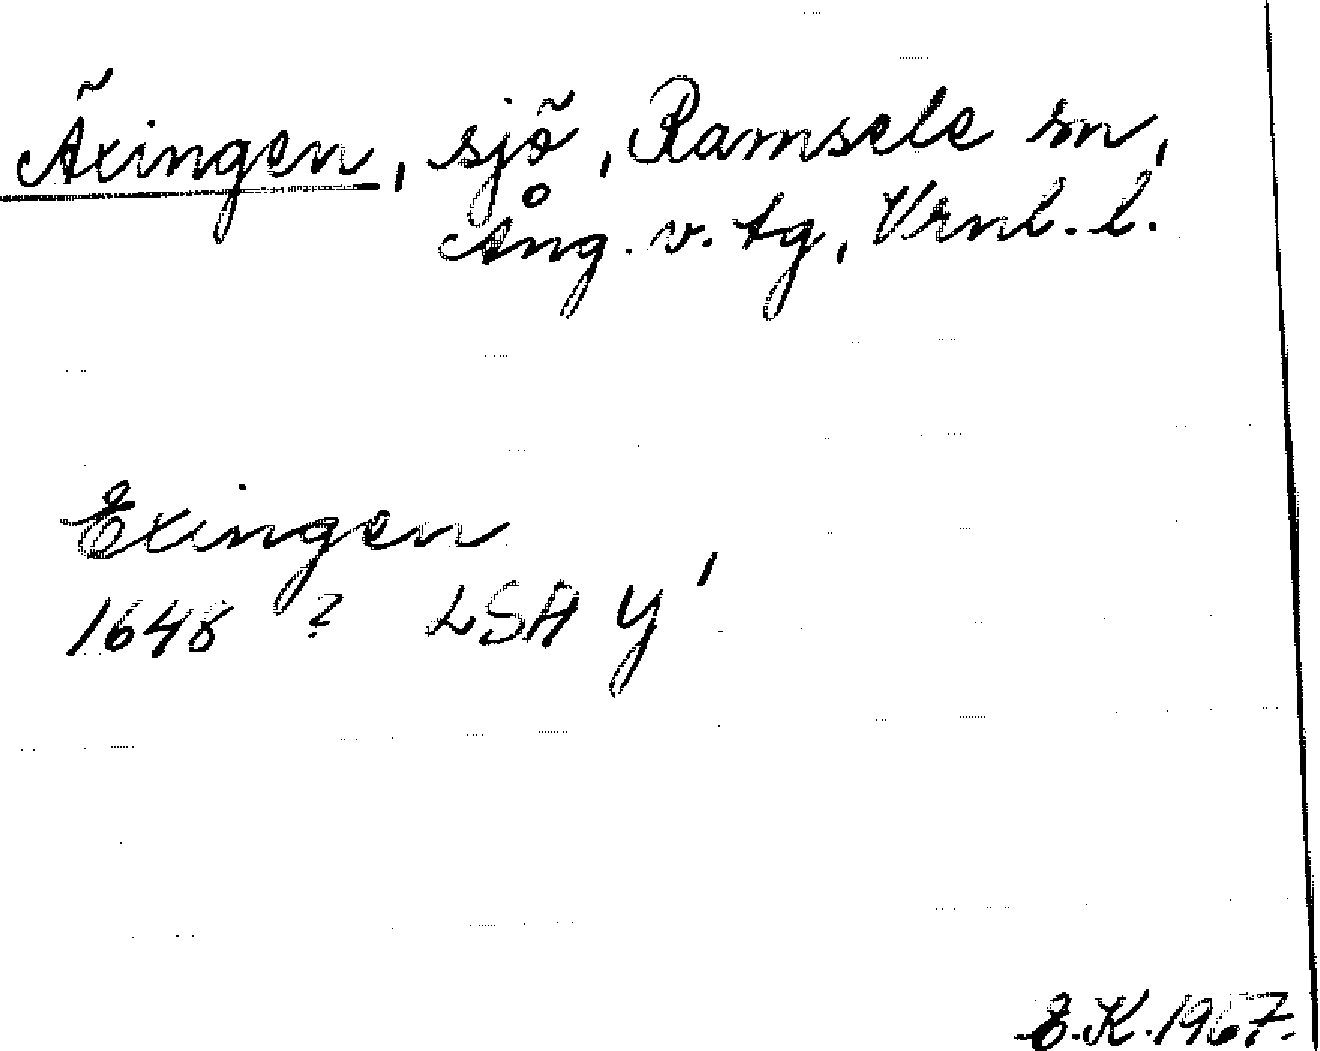 Äxingen, sjö, Ramsele sn,
Ång. v. tg, Vrnl. l.
Exingen
1648 ? LSA Y 1
E.K. 1967.